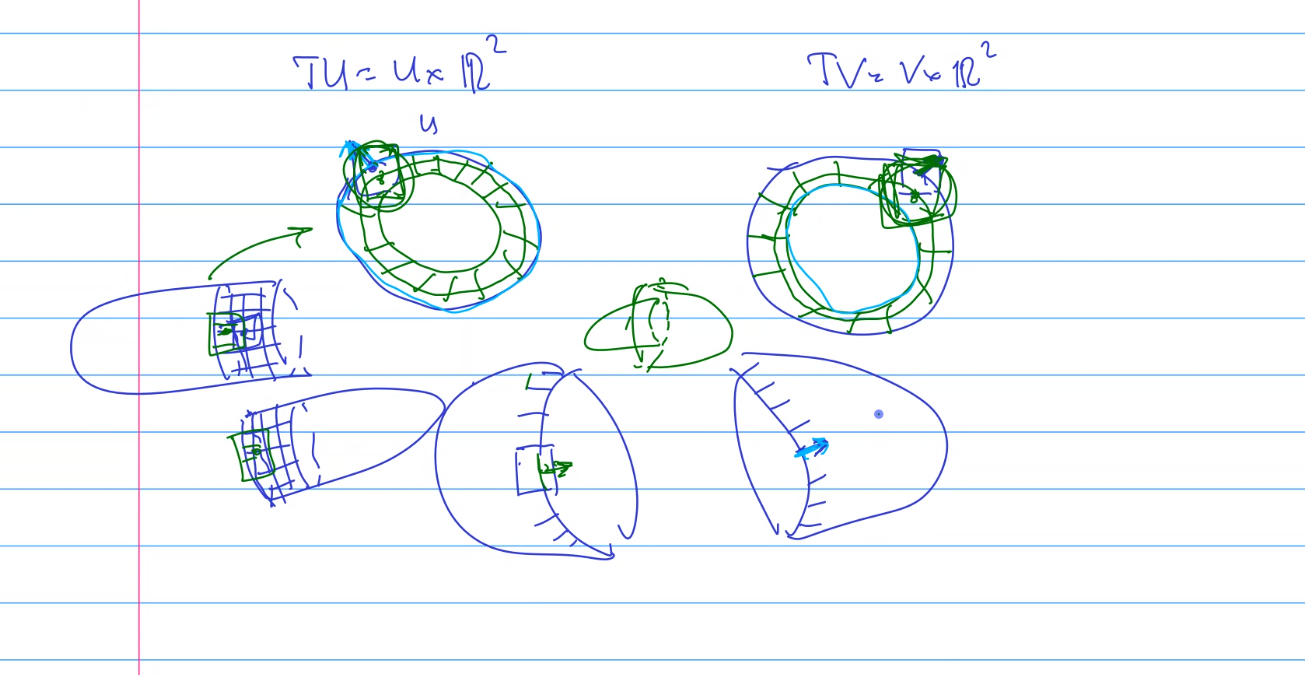 TU = U × ℝ²
TV = V × ℝ²
U